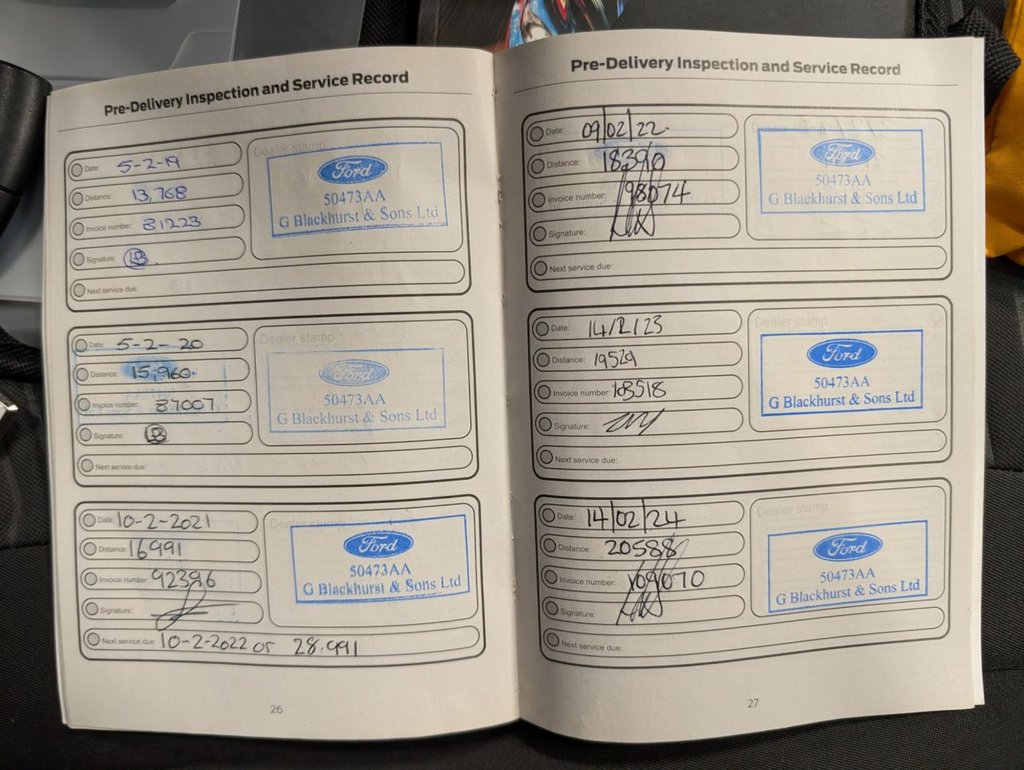 Pre-Delivery Inspection and Service Record
Date: 5-2-19
Distance: 13,768
Invoice number: 31223
Signature:
Next service due:
Dealer stamp
Ford
50473AA
G Blackhurst & Sons Ltd
Date: 5-2-20
Distance: 15,960
Invoice number: 87007
Signature:
Next service due:
Dealer stamp
Ford
50473AA
G Blackhurst & Sons Ltd
Date: 10-2-2021
Distance: 16991
Invoice number: 92396
Signature:
Next service due: 10-2-2022 or 28.991
Dealer stamp
Ford
50473AA
G Blackhurst & Sons Ltd
26
Pre-Delivery Inspection and Service Record
Date: 09/02/22
Distance: 18390
Invoice number: 98074
Signature:
Next service due:
Ford
50473AA
G Blackhurst & Sons Ltd
Date: 14/2/23
Distance: 19529
Invoice number: 103518
Signature:
Next service due:
Dealer stamp
Ford
50473AA
G Blackhurst & Sons Ltd
Date: 14/02/24
Distance: 20588
Invoice number: 109070
Signature:
Next service due:
Dealer stamp
Ford
50473AA
G Blackhurst & Sons Ltd
27